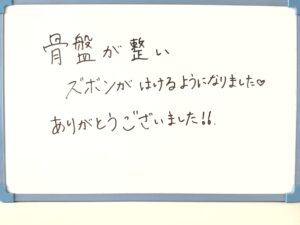 骨盤が整い
ズボンがはけるようになりました♡
ありがとうございました!!